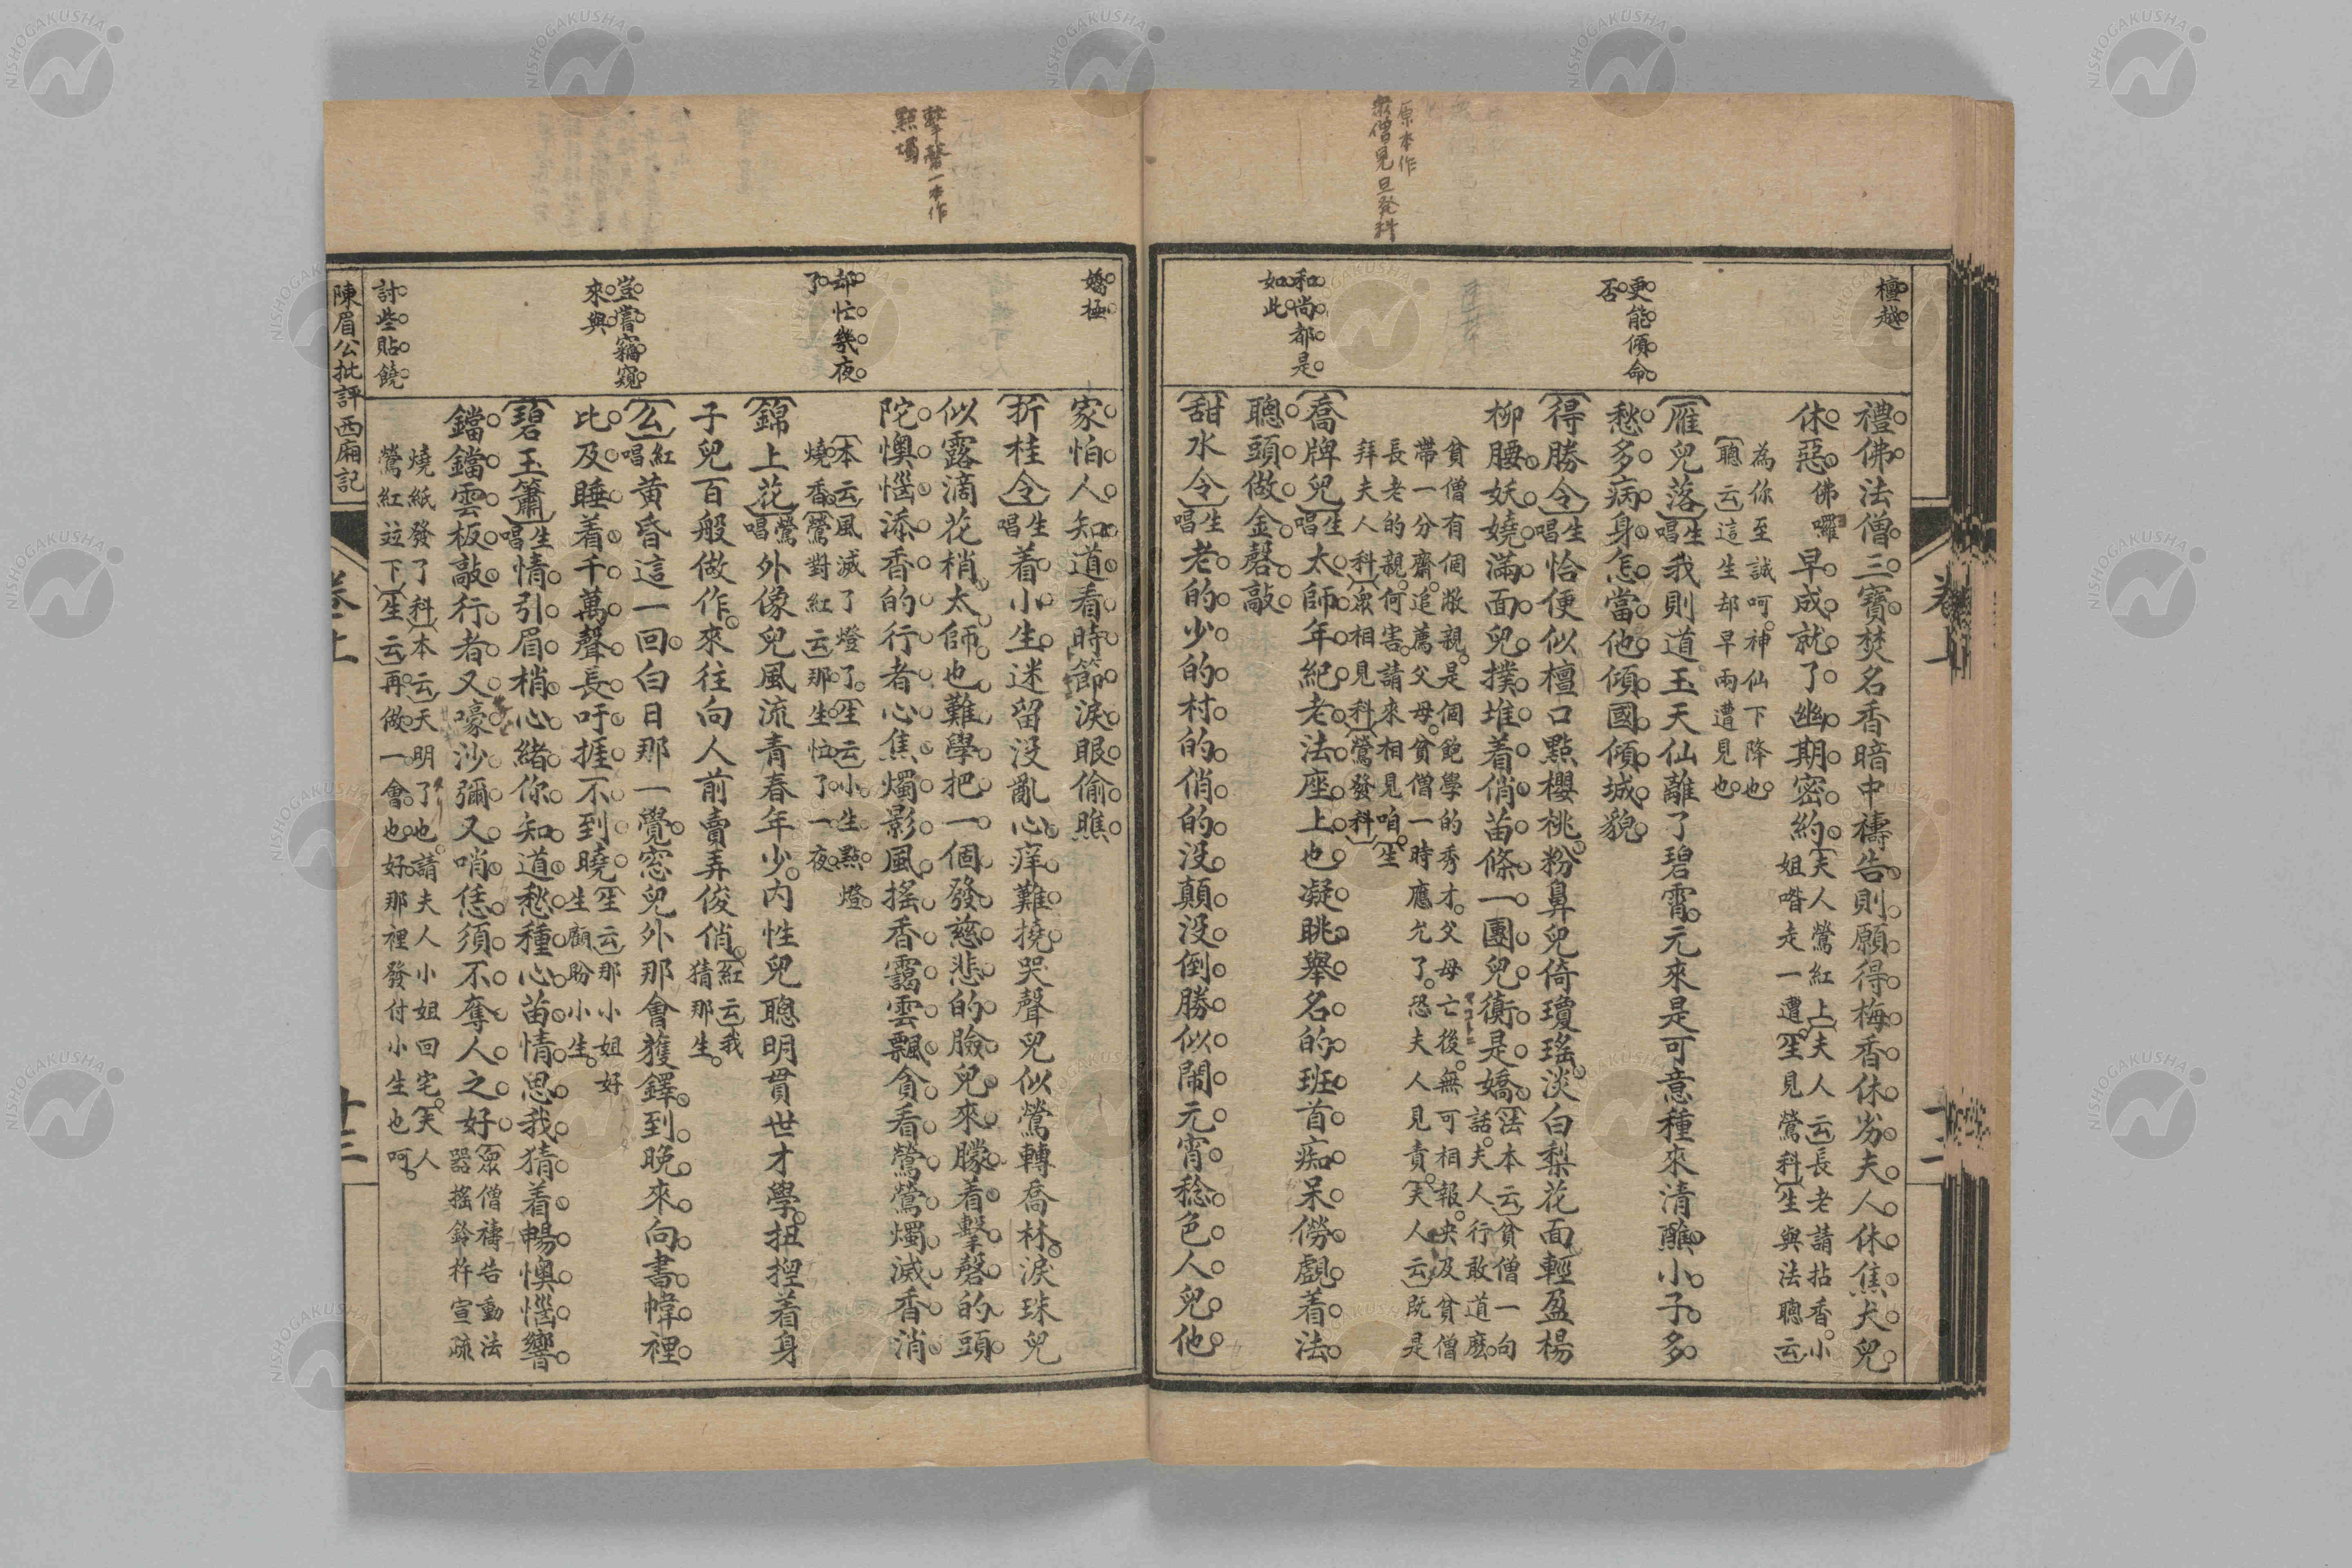 原本作
衆僧見旦發科
檀越
更能傾命
否
和尚都是
如此
禮佛法僧三寶焚名香暗中禱告則願得梅香休劣夫人休焦犬兒
休惡佛囉早成就了幽期密約
夫人鶯紅上夫人云長老請拈香小
姐喒走一遭生見鶯科生與法聰云
為你至誠呵神仙下降也
聰云這生却早兩遭見也
雁兒落生唱我則道玉天仙離了碧霄元來是可意種來清醮小子多
愁多病身怎當他傾國傾城貌
得勝令生唱恰便似檀口點櫻桃粉鼻兒倚瓊瑤淡白梨花面輕盈楊
柳腰妖嬈滿面兒撲堆着俏苗條一團兒衠是嬌
法本云貧僧一句
話夫人行敢道麽
貧僧有個敝親是個飽學的秀才父母亡後無可相報央及貧僧
帶一分齋追薦父母貧僧一時應允了恐夫人見責夫人云既是
長老的親何害請來相見咱生
拜夫人科衆相見科鶯發科
喬牌兒生唱太師年紀老法座上也凝眺舉名的班首痴呆僗覷着法
聰頭做金磬敲
甜水令生唱老的少的村的俏的没顛没倒勝似鬧元宵稔色人兒他
卷上
擊磬一本作
點燭
嬌極
却忙幾夜
了
豈嘗竊窺
來與
討些貼饒
家怕人知道看時節淚眼偷瞧
折桂令生唱着小生迷留没亂心痒難撓哭聲兒似鶯轉喬林淚珠兒
似露滴花梢太師也難學把一個發慈悲的臉兒來朦着擊磬的頭
陀懊惱添香的行者心焦燭影風搖香靄雲飄貪看鶯鶯燭滅香消
本云風滅了燈了生云小生點燈
燒香鶯對紅云那生忙了一夜
錦上花鶯唱外像兒風流青春年少内性兒聰明貫世才學扭捏着身
子兒百般做作來往向人前賣弄俊俏
紅云我
猜那生
幺紅唱黄昏這一回白日那一覺窓兒外那會獲鐸到晚來向書幃裡
比及睡着千萬聲長吁捱不到曉
生云那小姐好
生顧盼小生
碧玉簫生唱情引眉梢心緒你知道愁種心苗情思我猜着暢懊惱響
鐺鐺雲板敲行者又嚎沙彌又哨恁須不奪人之好
衆僧禱告動法
器搖鈴杵宣疏
燒紙發了科本云天明了也請夫人小姐回宅夫人
鶯紅竝下生云再做一會也好那裡發付小生也呵
陳眉公批評西廂記
卷上
十三